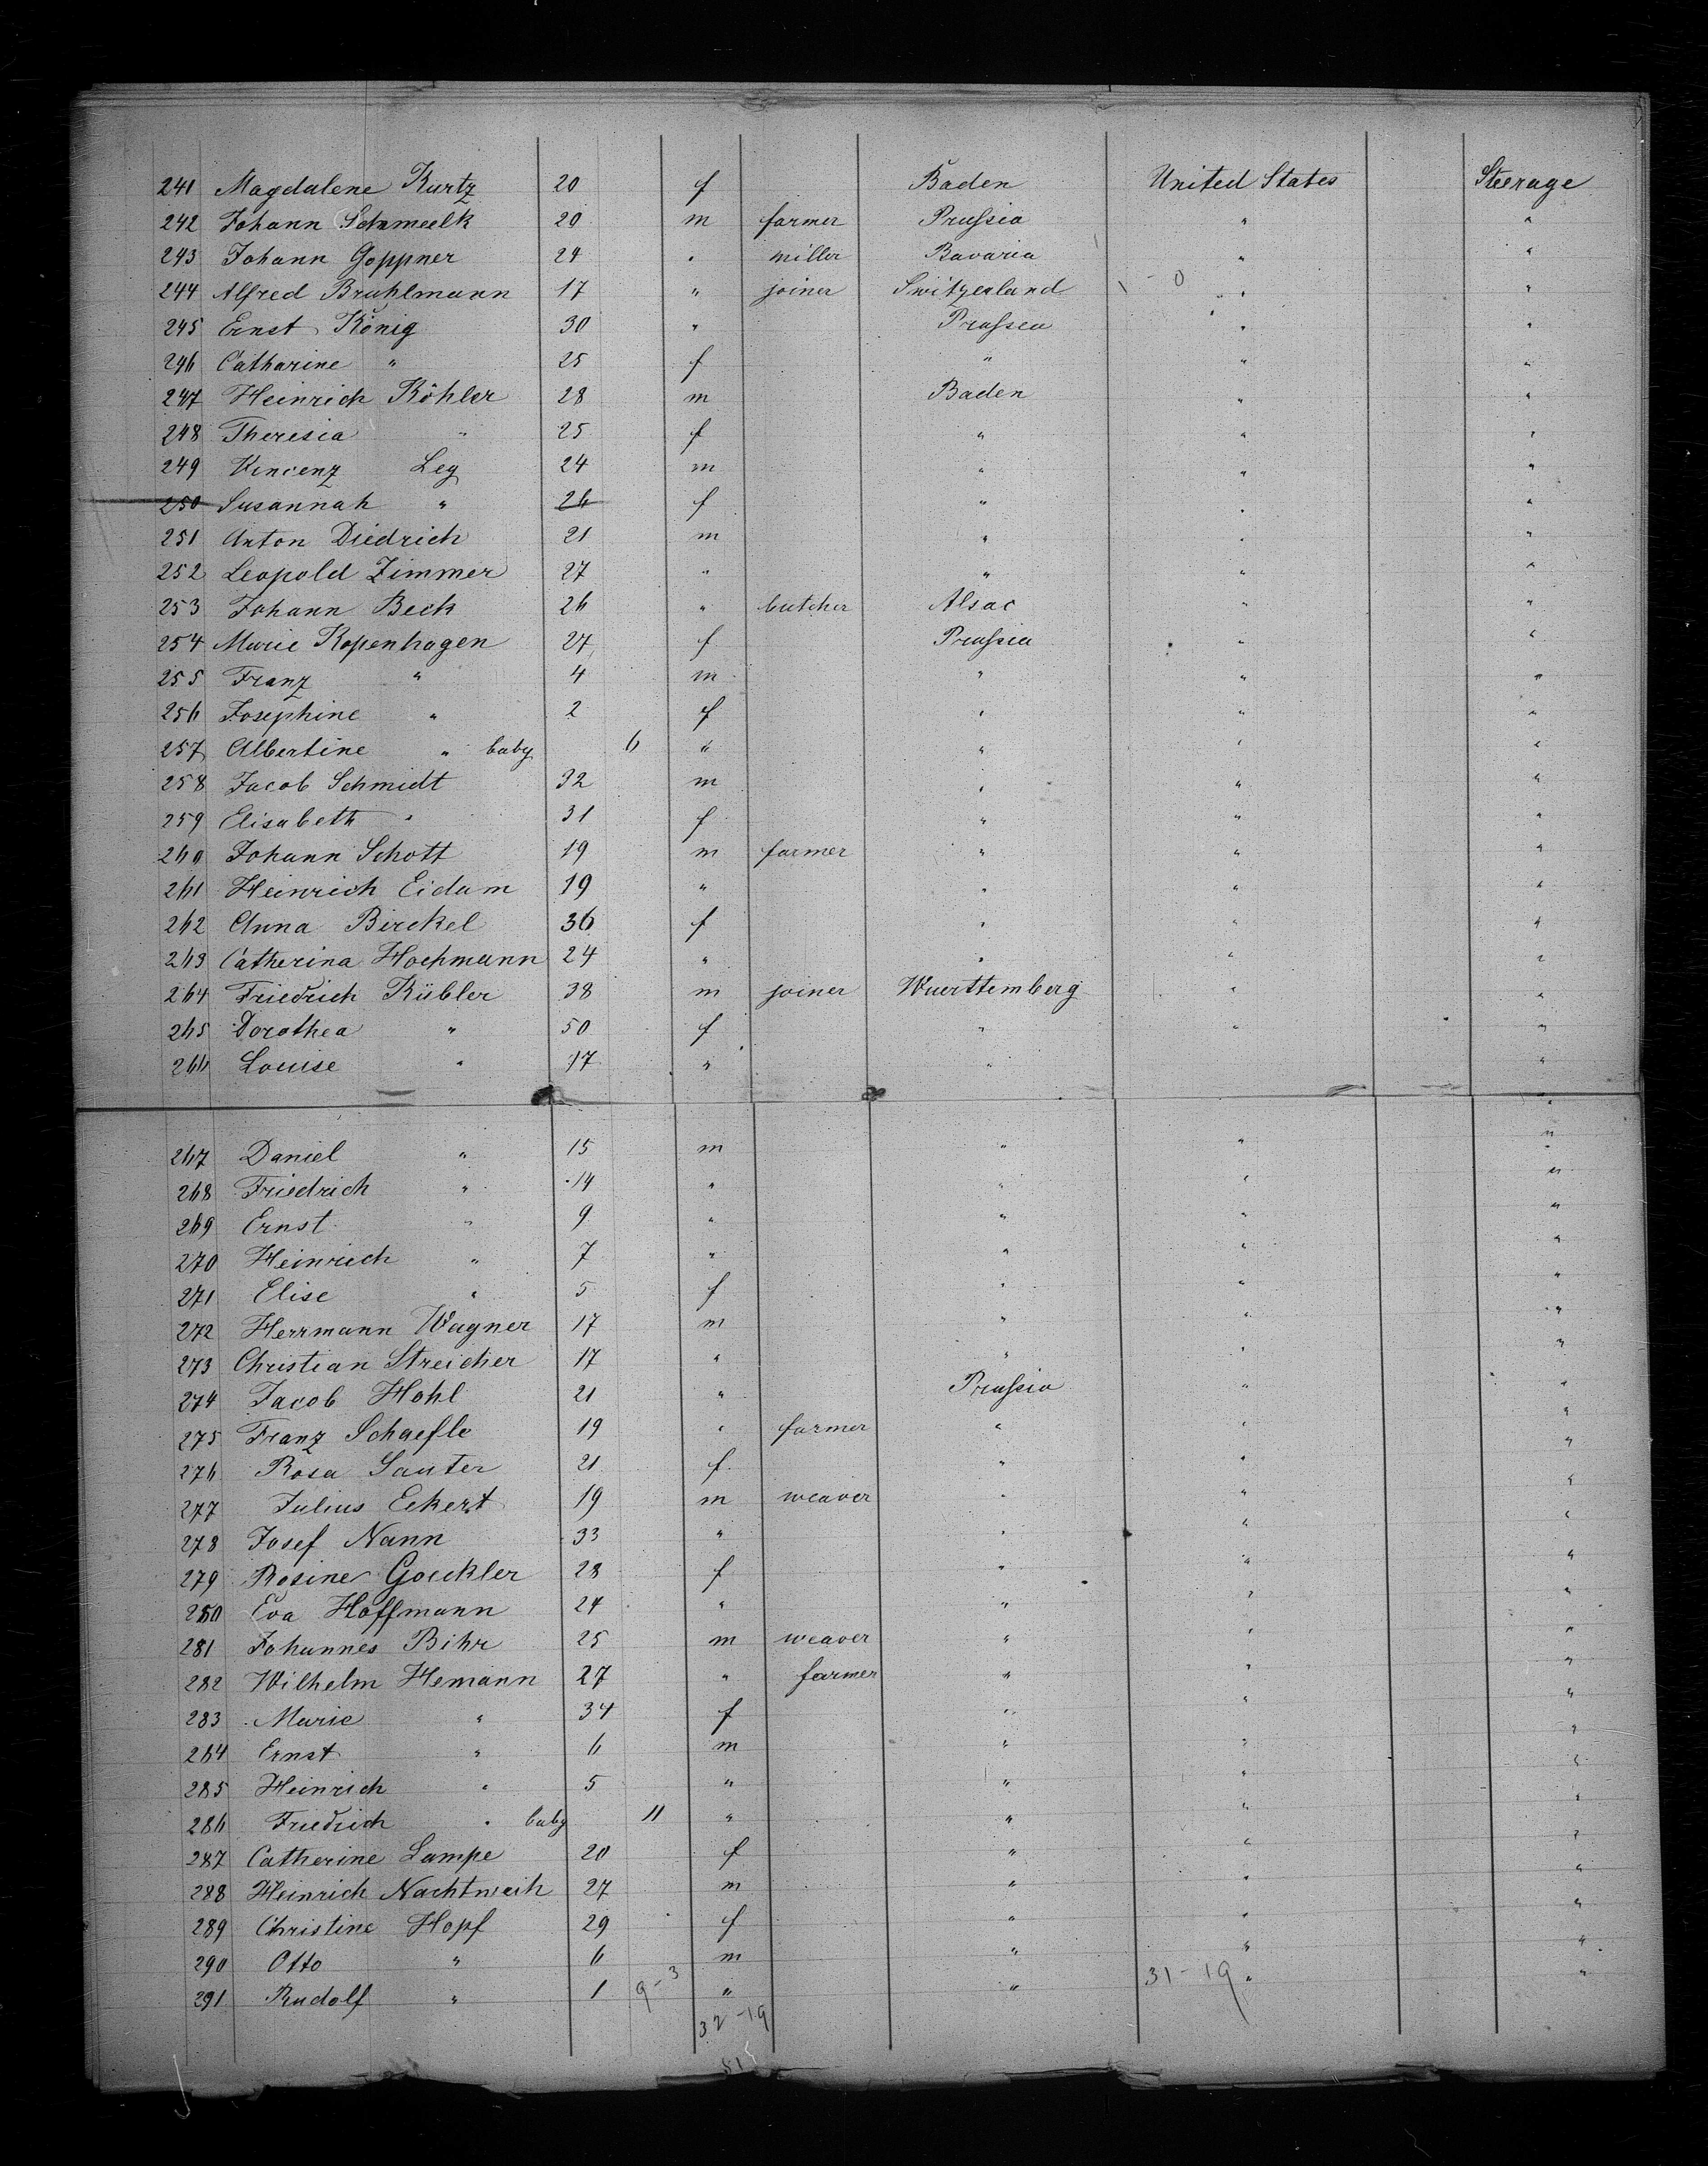 241 Magdalene Kurtz 20 f Baden United States Steerage
242 Johann Schmeelk 20 m farmer Prussia " "
243 Johann Goppner 24 " miller Bavaria " "
244 Alfred Bruhlmann 17 " joiner Switzerland " "
245 Ernst König 30 " Prussia " "
246 Catharine " 25 f " " "
247 Heinrich Köhler 28 m Baden " "
248 Theresia " 25 f " " "
249 Vincenz Ley 24 m " " "
250 Susannah " 26 f " " "
251 Anton Diedrich 21 m " " "
252 Leopold Zimmer 27 " " " "
253 Johann Beck 26 " butcher Alsac " "
254 Marie Kopenhagen 27 f Prussia " "
255 Franz " 4 m " " "
256 Josephine " 2 f " " "
257 Albertine " baby 6 " " " "
258 Jacob Schmidt 32 m " " "
259 Elisabeth " 31 f " " "
260 Johann Schott 19 m farmer " " "
261 Heinrich Eidam 19 " " " "
262 Anna Birckel 36 f " " "
263 Catherina Hochmann 24 " " " "
264 Friedrich Kübler 38 m joiner Wuerttemberg " "
265 Dorothea " 50 f " " "
266 Louise " 17 " " "
267 Daniel " 15 m " " "
268 Friedrich " 14 " " " "
269 Ernst " 9 " " " "
270 Heinrich " 7 " " " "
271 Elise " 5 f " " "
272 Herrmann Wagner 17 m " " "
273 Christian Streicher 17 " " " "
274 Jacob Hohl 21 " Prussia " "
275 Franz Schaefle 19 " farmer " " "
276 Rosa Sauter 21 f " " "
277 Julius Eckert 19 m weaver " " "
278 Josef Nann 33 " " " "
279 Rosine Goeckler 28 f " " "
280 Eva Hoffmann 24 " " " "
281 Johannes Bihr 25 m weaver " " "
282 Wilhelm Hemann 27 " farmer " " "
283 Marie " 34 f " " "
284 Ernst " 6 m " " "
285 Heinrich " 5 " " " "
286 Friedrich " baby 11 " " " "
287 Catherine Lampe 20 f " " "
288 Heinrich Nachtweih 27 m " " "
289 Christine Hopf 29 f " " "
290 Otto " 6 m " " "
291 Rudolf " 1 9-3 " " 31-19 " "
32-19
51